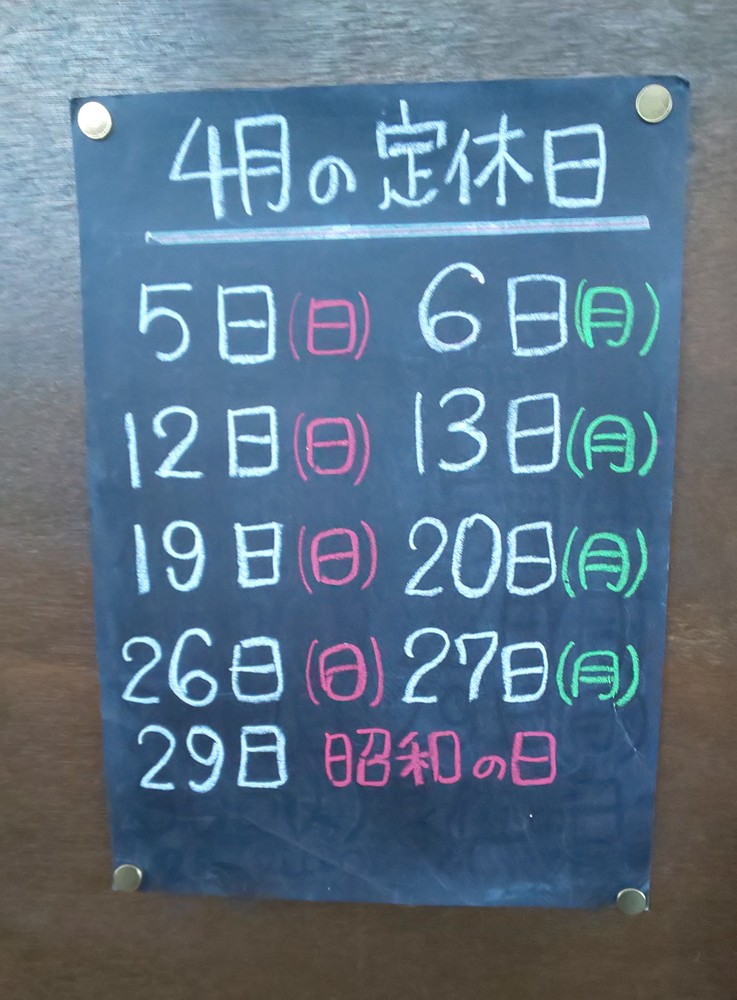 4月の定休日
5日(日) 6日(月)
12日(日) 13日(月)
19日(日) 20日(月)
26日(日) 27日(月)
29日 昭和の日